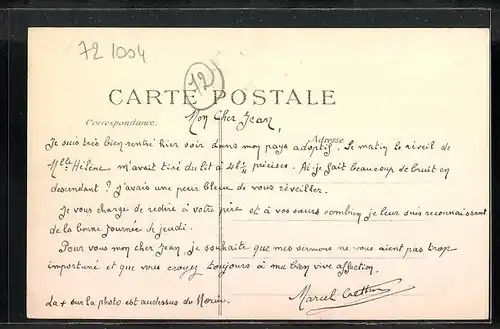 72 1004
72
CARTE POSTALE
Correspondance:
Adresse
Mon Cher Jean,
Je suis très bien rentré hier soir dans mon pays adoptif. Le matin le réveil de
Mlle Hélène m'avait tiré du lit à 4h ¼ précises. Ai-je fait beaucoup de bruit en
descendant ? j'avais une peur bleue de vous réveiller.
Je vous charge de redire à votre père et à vos sœurs combien je leur suis reconnaissant
de la bonne journée de jeudi.
Pour vous mon cher Jean, je souhaite que mes sermons ne vous aient pas trop
importuné et que vous croyez toujours à ma bien vive affection.
Marcel
La + sur la photo est audessus du